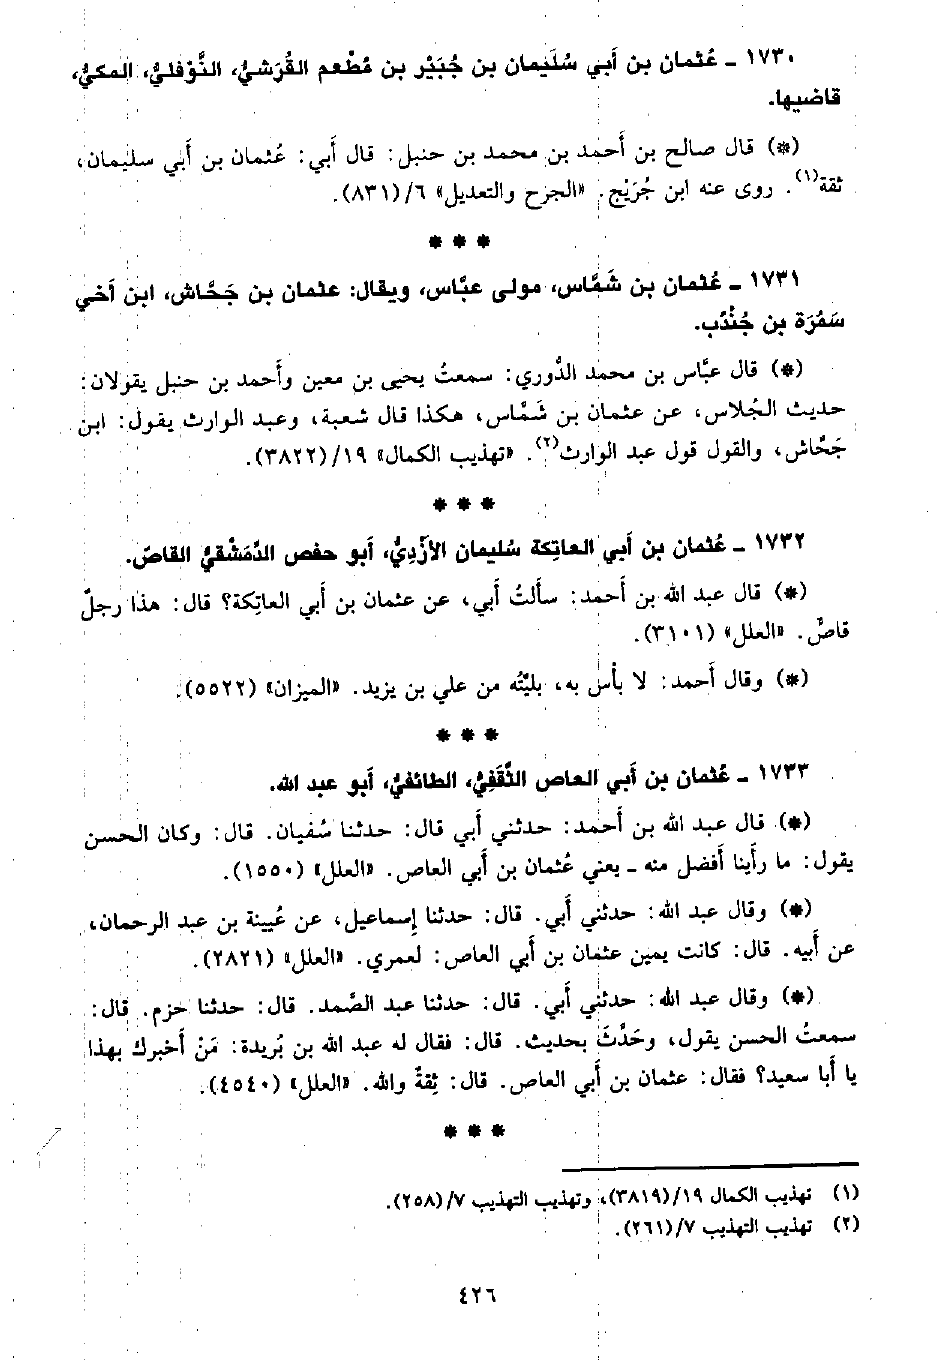 ١٧٣٠ ـ عُثمان بن أبي سُلَيمان بن جُبَيْر بن مُطْعم القُرَشيُّ، النَّوْفليُّ، المكيُّ،
قاضيها.
(*) قال صالح بن أَحمد بن محمد بن حنبل: قال أَبي: عُثمان بن أَبي سليمان،
ثقة(١). روى عنه ابن جُرَيْج. «الجرح والتعديل» ٦/(٨٣١).
* * *
١٧٣١ ـ عُثمان بن شَمَّاس، مولى عبَّاس، ويقال: عثمان بن جَحَّاش، ابن أخي
سَمُرَة بن جُنْدُب.
(*) قال عبَّاس بن محمد الدُّوري: سمعتُ يحيى بن معين وأَحمد بن حنبل يقولان:
حديث الجُلاس، عن عثمان بن شَمَّاس، هكذا قال شعبة، وعبد الوارث يقول: ابن
جَحَّاش، والقول قول عبد الوارث(٢). «تهذيب الكمال» ١٩/(٣٨٢٢).
* * *
١٧٣٢ ـ عُثمان بن أبي العاتِكة سُليمان الأزْدِيُّ، أبو حفص الدِّمَشْقيُّ القاصّ.
(*) قال عبد الله بن أَحمد: سأَلتُ أَبي، عن عثمان بن أَبي العاتِكة؟ قال: هذا رجلٌ
قاصٌّ. «العلل» (٣١٠١).
(*) وقال أَحمد: لا بأْس به، بليَّتُه من علي بن يزيد. «الميزان» (٥٥٢٢).
* * *
١٧٣٣ ـ عُثمان بن أبي العاص الثَّقَفِيُّ، الطائفيُّ، أبو عبد الله.
(*) قال عبد الله بن أَحمد: حدثني أَبي قال: حدثنا سُفيان. قال: وكان الحسن
يقول: ما رأَينا أَفضل منه ـ يعني عُثمان بن أَبي العاص. «العلل» (١٥٥٠).
(*) وقال عبد الله: حدثني أَبي. قال: حدثنا إِسماعيل، عن عُيينة بن عبد الرحمان،
عن أَبيه. قال: كانت يمين عثمان بن أَبي العاص: لعمري. «العلل» (٢٨٢١).
(*) وقال عبد الله: حدثني أَبي. قال: حدثنا عبد الصَّمد. قال: حدثنا حزم. قال:
سمعتُ الحسن يقول، وحَدَّثَ بحديث. قال: فقال له عبد الله بن بُريدة: مَنْ أَخبرك بهذا
يا أَبا سعيد؟ فقال: عثمان بن أَبي العاص. قال: ثِقةٌ والله. «العلل» (٤٥٤٠).
* * *
(١) تهذيب الكمال ١٩/(٣٨١٩)، وتهذيب التهذيب ٧/(٢٥٨).
(٢) تهذيب التهذيب ٧/(٢٦١).
٤٢٦